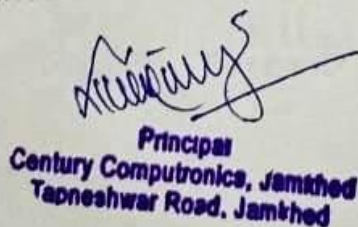 Principal
Century Computronics, Jamkhed
Tapneshwar Road, Jamkhed